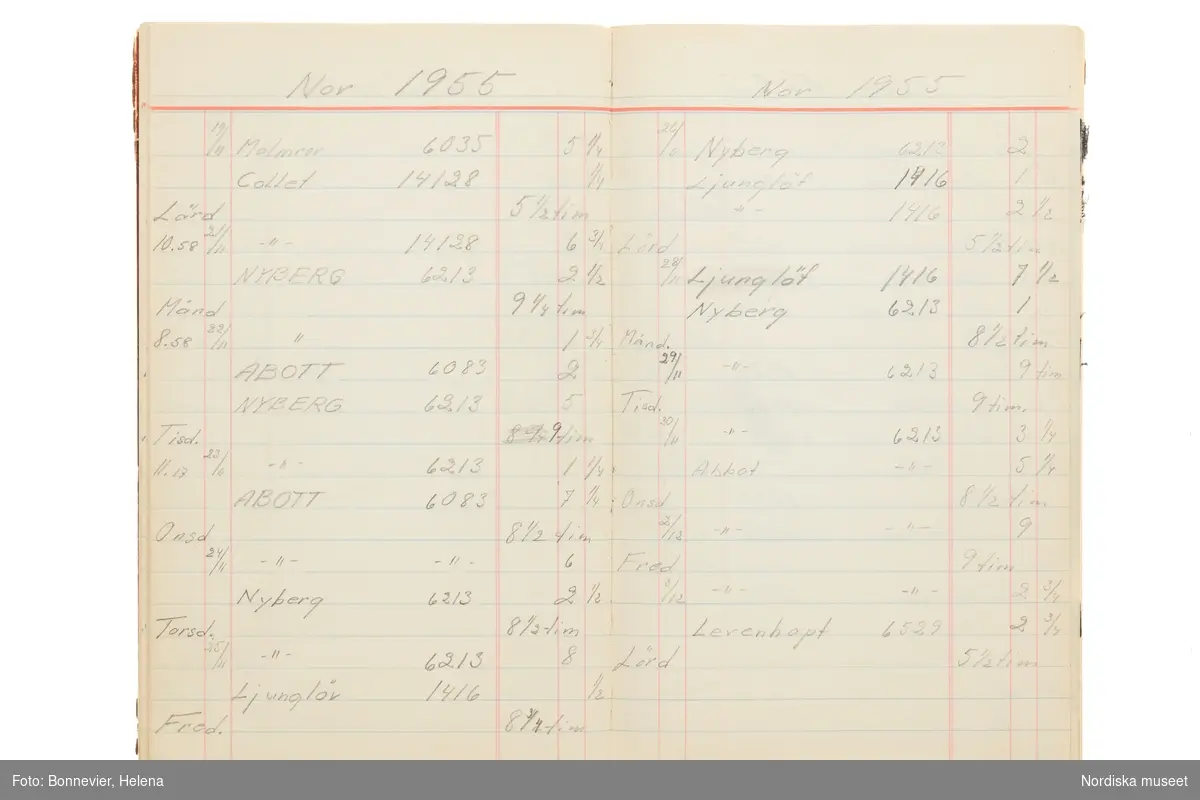 Nov 1955
19/11 Malmros 6035 5 1/4
Collet 14128 1/4
Lörd 5 1/2 tim
10.58 21/11 -"- 14128 6 3/4
NYBERG 6213 2 1/2
Månd 9 1/4 tim
8.58 22/11 " 1 3/4
ABOTT 6083 2
NYBERG 6213 5
Tisd. 9 tim
11.17 23/11 -"- 6213 1 1/4
ABOTT 6083 7 1/4
Onsd 8 1/2 tim
24/11 -"- -"- 6
Nyberg 6213 2 1/2
Torsd. 8 1/2 tim
25/11 -"- 6213 8
Ljunglöv 1416 1/2
Fred. 8 3/4 tim
Nov 1955
26/11 Nyberg 6213 2
Ljunglöf 1416 1
-"- 1416 2 1/2
Lörd 5 1/2 tim
28/11 Ljunglöf 1416 7 1/2
Nyberg 6213 1
Månd. 8 1/2 tim
29/11 -"- 6213 9 tim
Tisd. 9 tim.
30/11 -"- 6213 3 1/4
Abbot -"- 5 1/4
Onsd 8 1/2 tim
2/12 -"- -"- 9
Fred 9 tim
/12 -"- -"- 2 3/4
Levenhapt 6529 2 3/4
Lörd 5 1/2 tim
Foto: Bonnevier, Helena
Nordiska museet